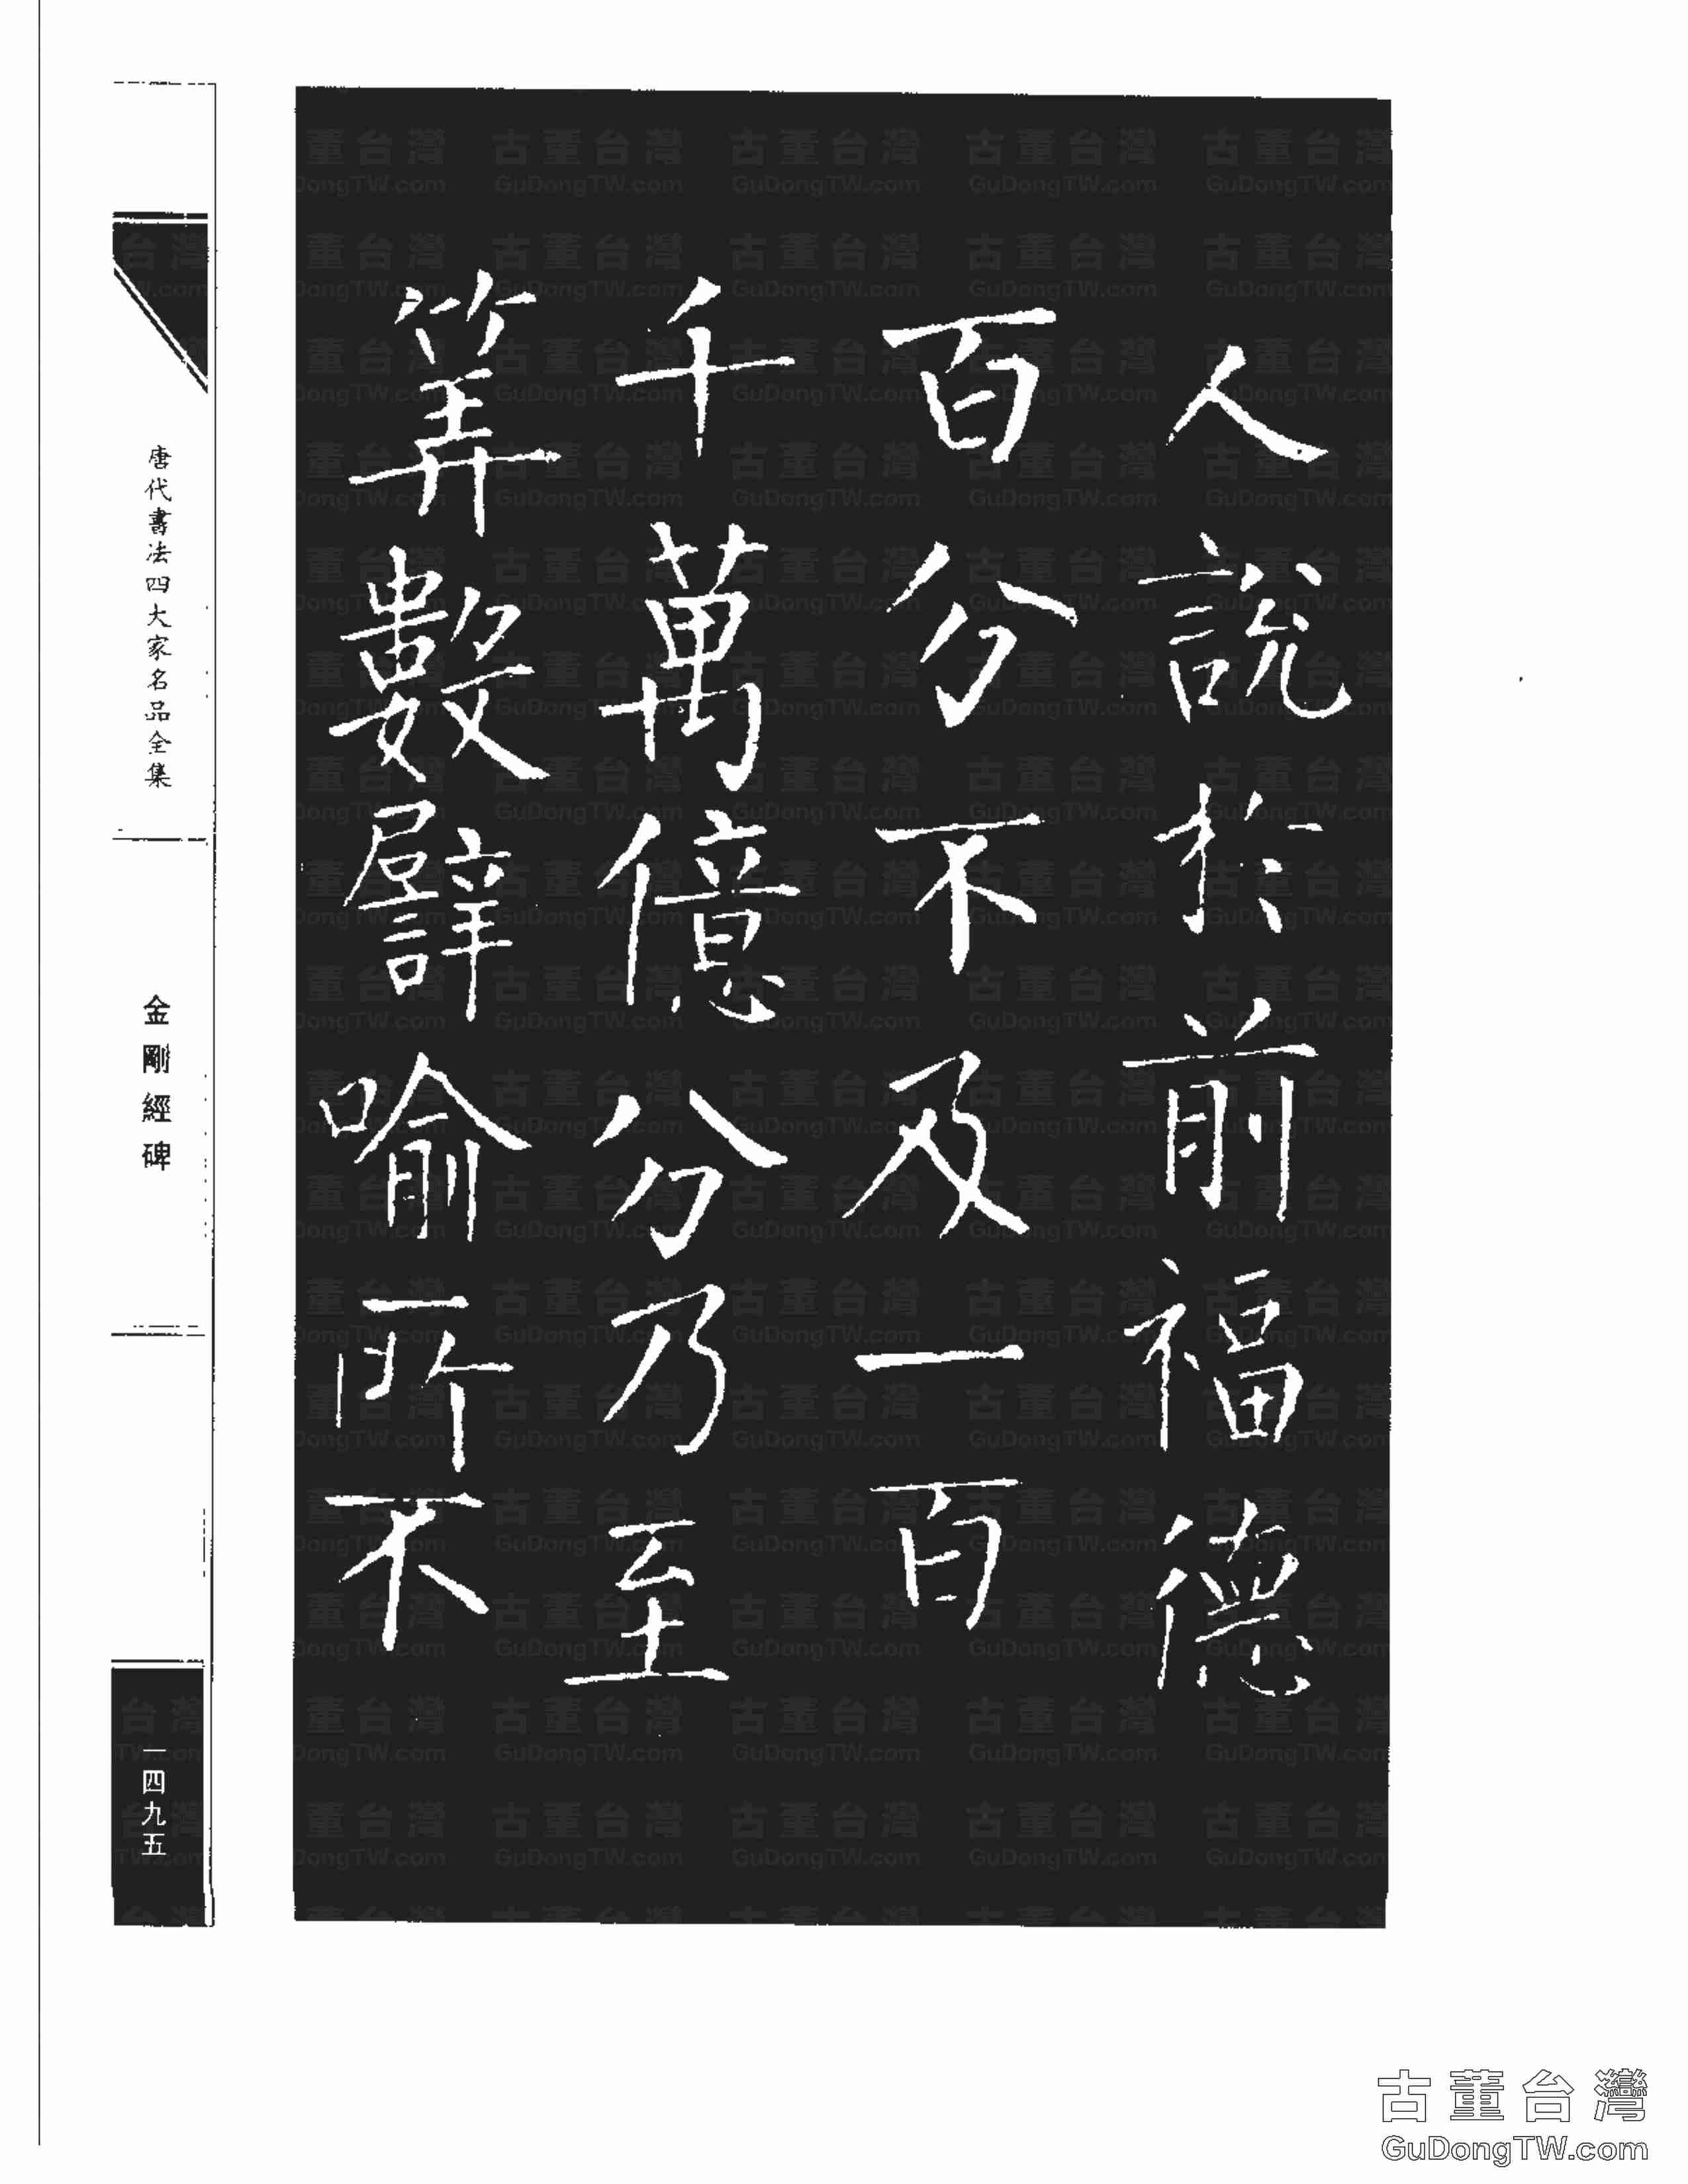 人說於前福德
百分不及一百
千萬億分乃至
筭數譬喻所不
唐代書法四大家名品全集
金剛經碑
一四九五
古董台灣
GuDongTW.com